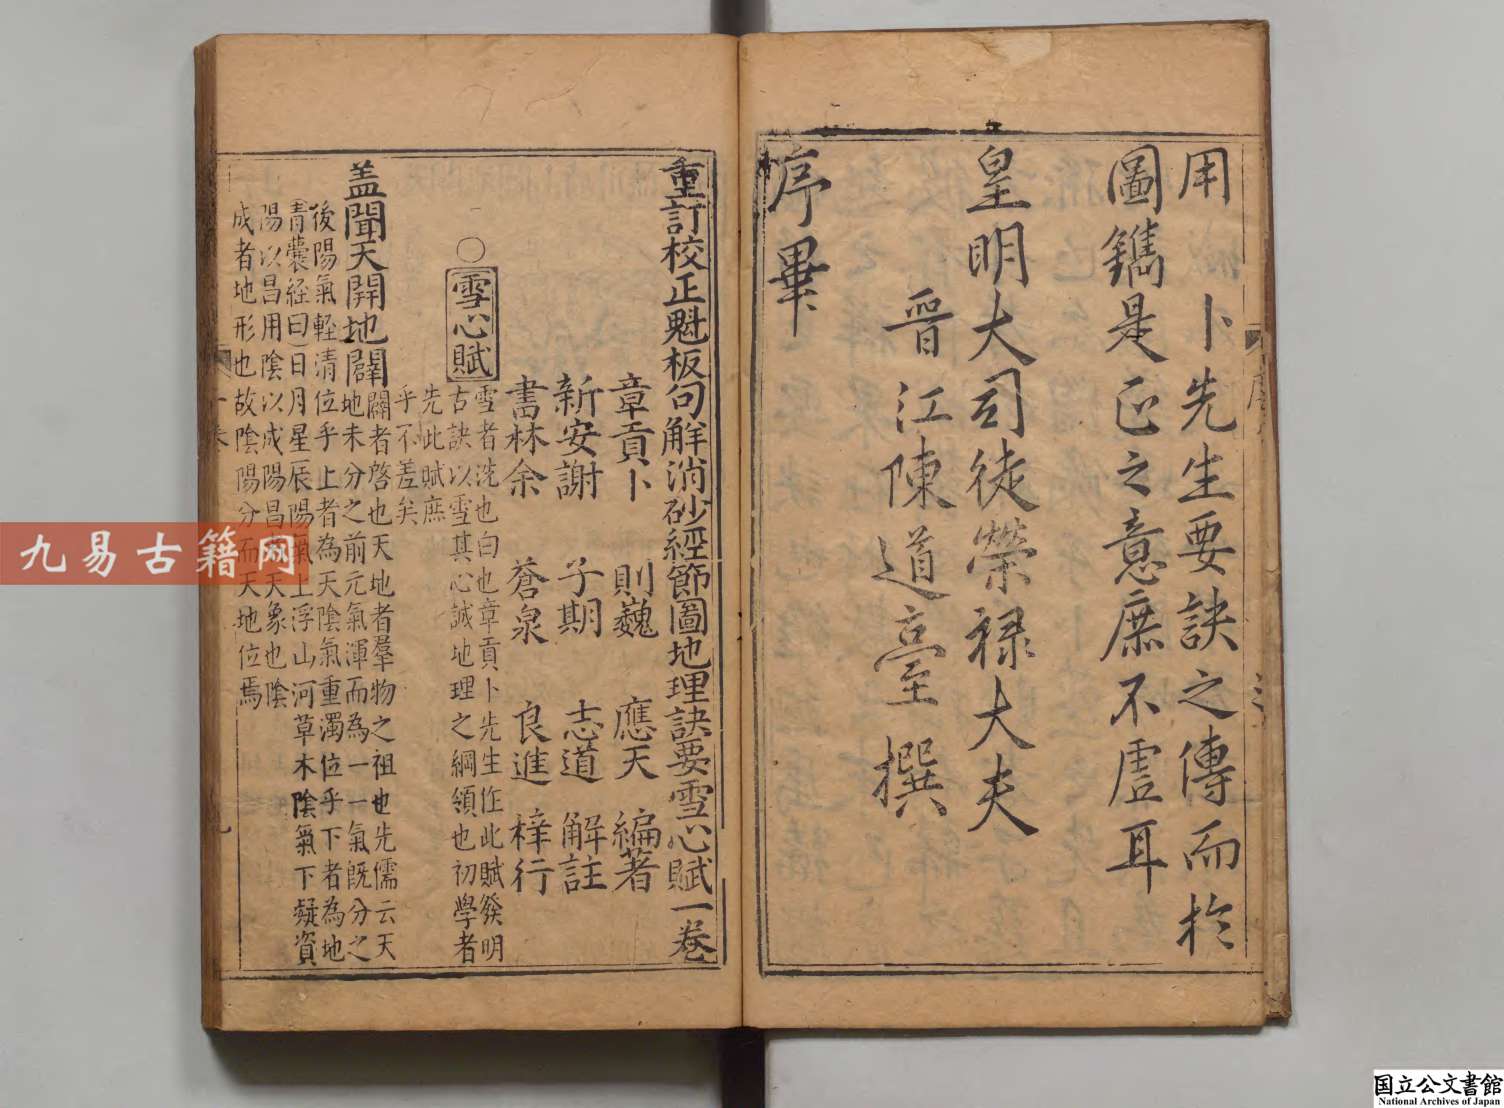 用卜先生要訣之傳而於
圖鐫是正之意庶不虛耳
皇明大司徒榮祿大夫
晉江陳道臺撰
序畢
重訂校正魁板句解消砂經節圖地理訣要雪心賦一卷
章貢卜 則巍 應天 編著
新安謝 子期 志道 解註
書林余 蒼泉 良進 梓行
○雪心賦
雪者洗也白也章貢卜先生作此賦發明
古訣以雪其心誠地理之綱領也初學者
先此賦庶
乎不差矣
盖聞天開地闢
闢者啓也天地者羣物之祖也先儒云天
地未分之前元氣渾而為一一氣既分之
後陽氣輕清位乎上者為天陰氣重濁位乎下者為地
青囊経曰日月星辰陽氣上浮山河草木陰氣下凝資
陽以昌用陰以成陽昌天象也陰
成者地形也故陰陽分而天地位焉
九易古籍网
国立公文書館
National Archives of Japan